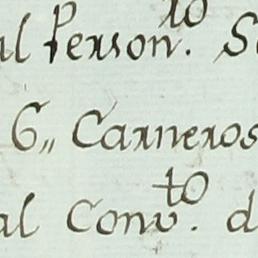 al Person.ro S
6,, Carneros
al Conv.to d